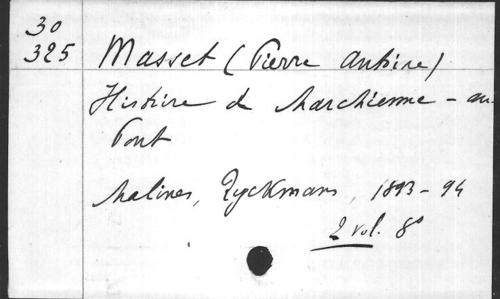 30
325
Masset (Pierre Antoine)
Histoire de Marchienne - au
Pont
Malines, Ryckmans, 1893-94
2 vol. 8°